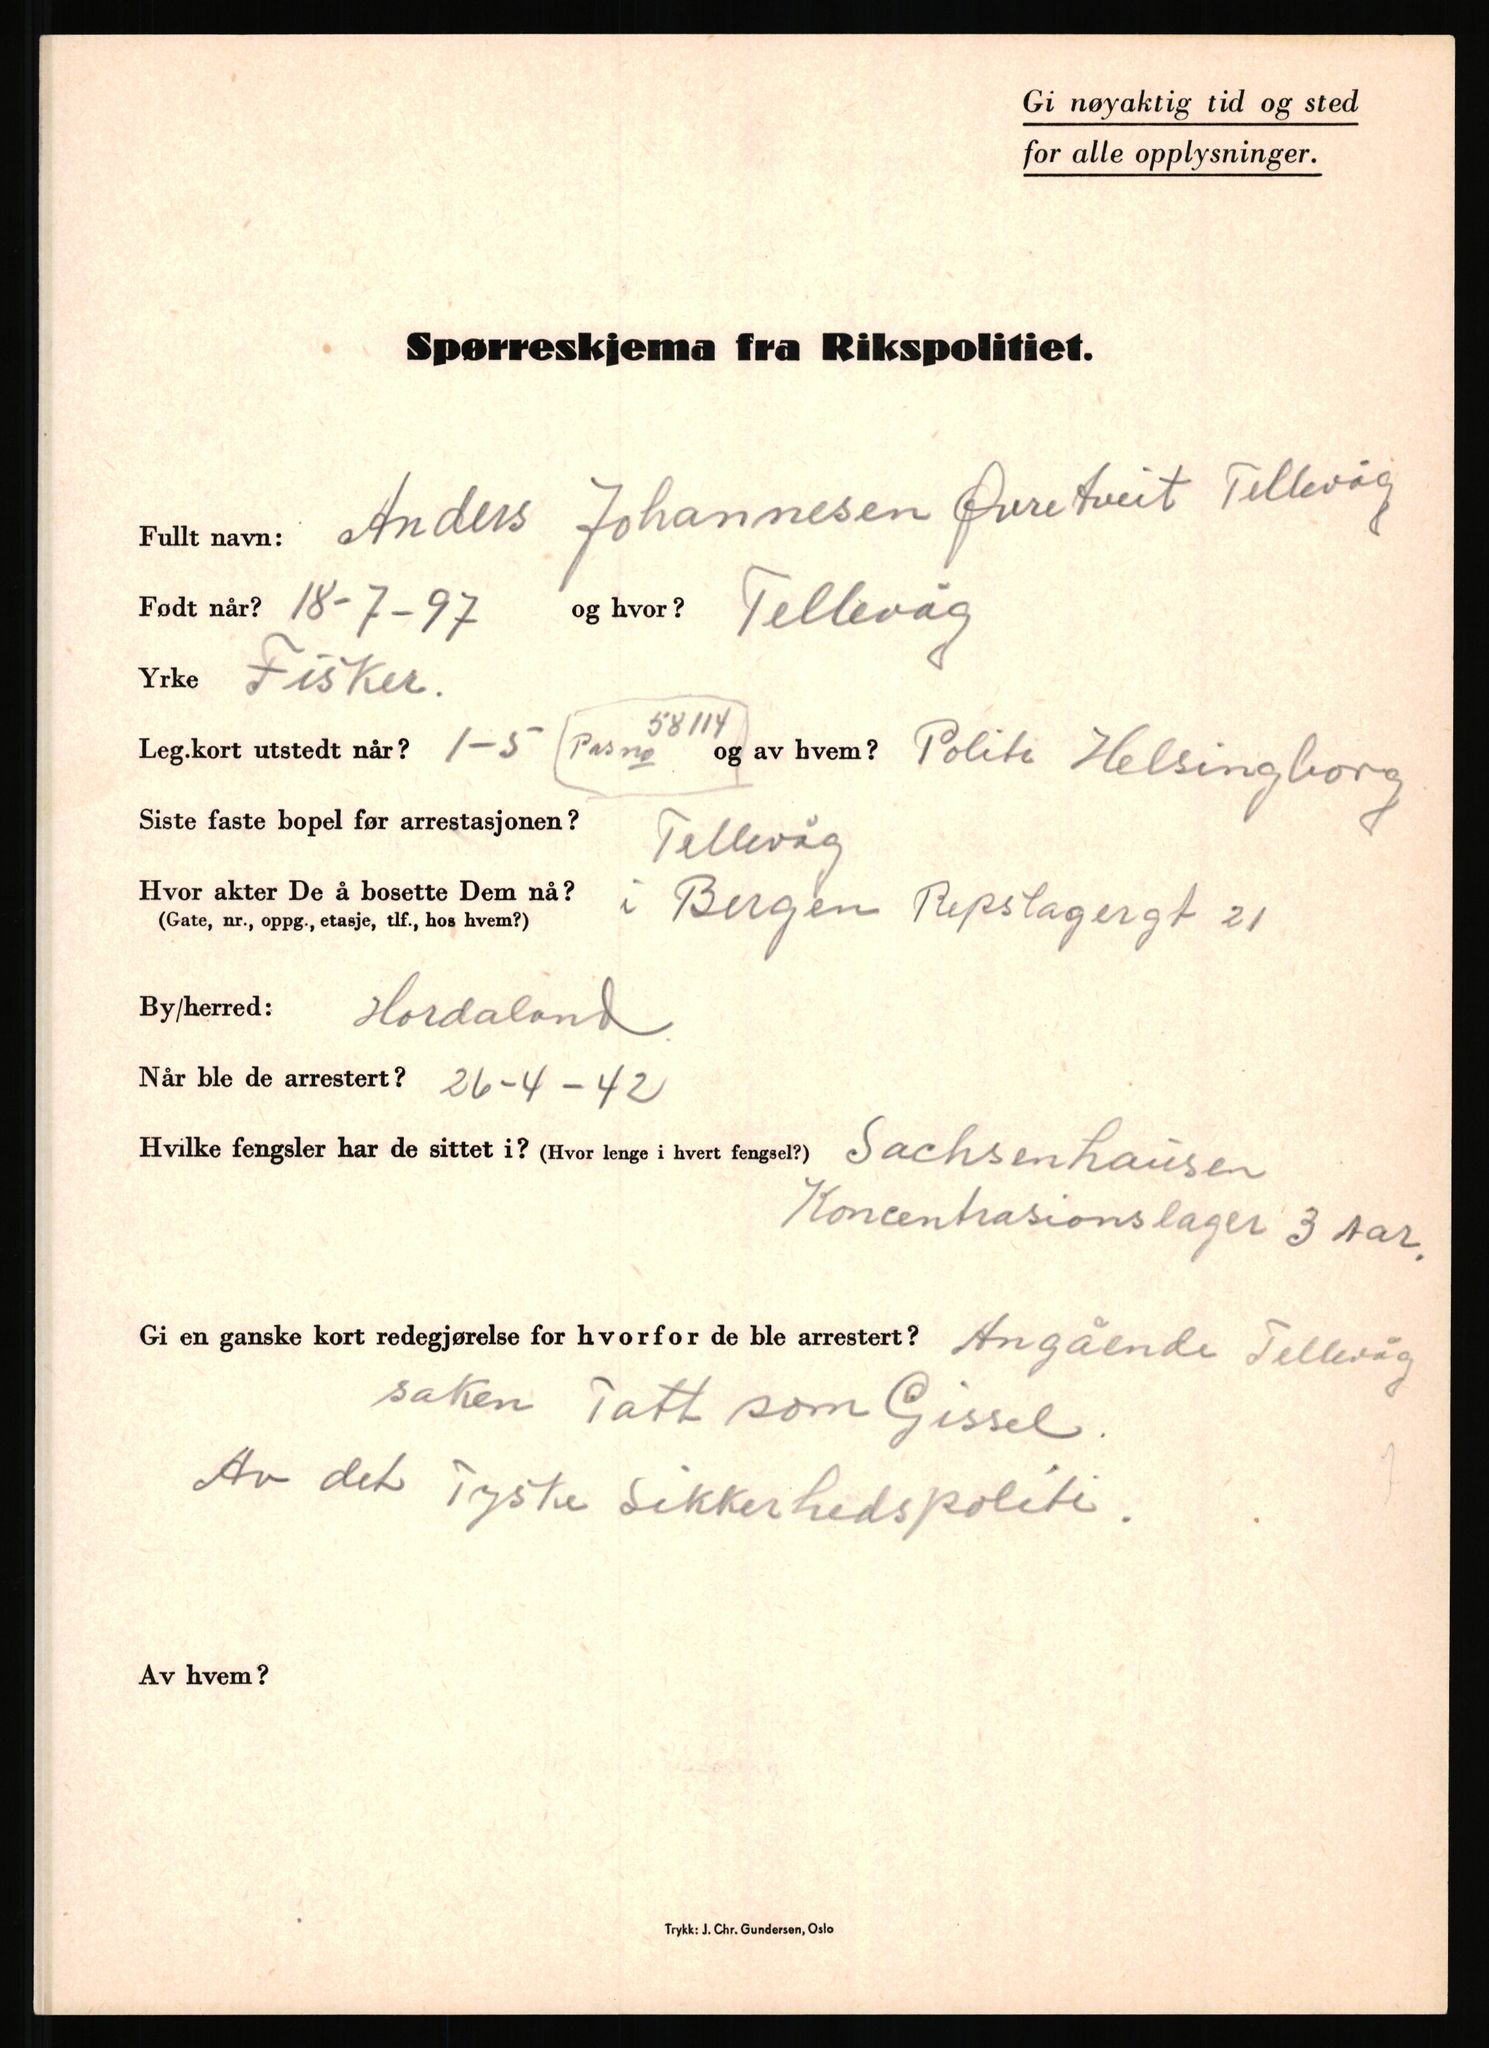 Gi nøyaktig tid og sted
for alle opplysninger.
Spørreskjema fra Rikspolitiet.
Fullt navn: Anders Johannesen Øvretveit Tellevåg
Født når? 18-7-97 og hvor? Tellevåg
Yrke Fisker.
Leg.kort utstedt når? 1-5 Pas no 58114 og av hvem? Politi Helsingborg
Siste faste bopel før arrestasjonen? Tellevåg
Hvor akter De å bosette Dem nå? i Bergen Repslagergt 21
(Gate, nr., oppg., etasje, tlf., hos hvem?)
By/herred: Hordaland
Når ble de arrestert? 26-4-42
Hvilke fengsler har de sittet i? (Hvor lenge i hvert fengsel?) Sachsenhausen
Koncentrasionslager 3 Aar.
Gi en ganske kort redegjørelse for hvorfor de ble arrestert? Angående Tellevåg
saken Tatt som Gissel.
Av det Tyske Sikkerhedspoliti.
Av hvem?
Trykk: J. Chr. Gundersen, Oslo